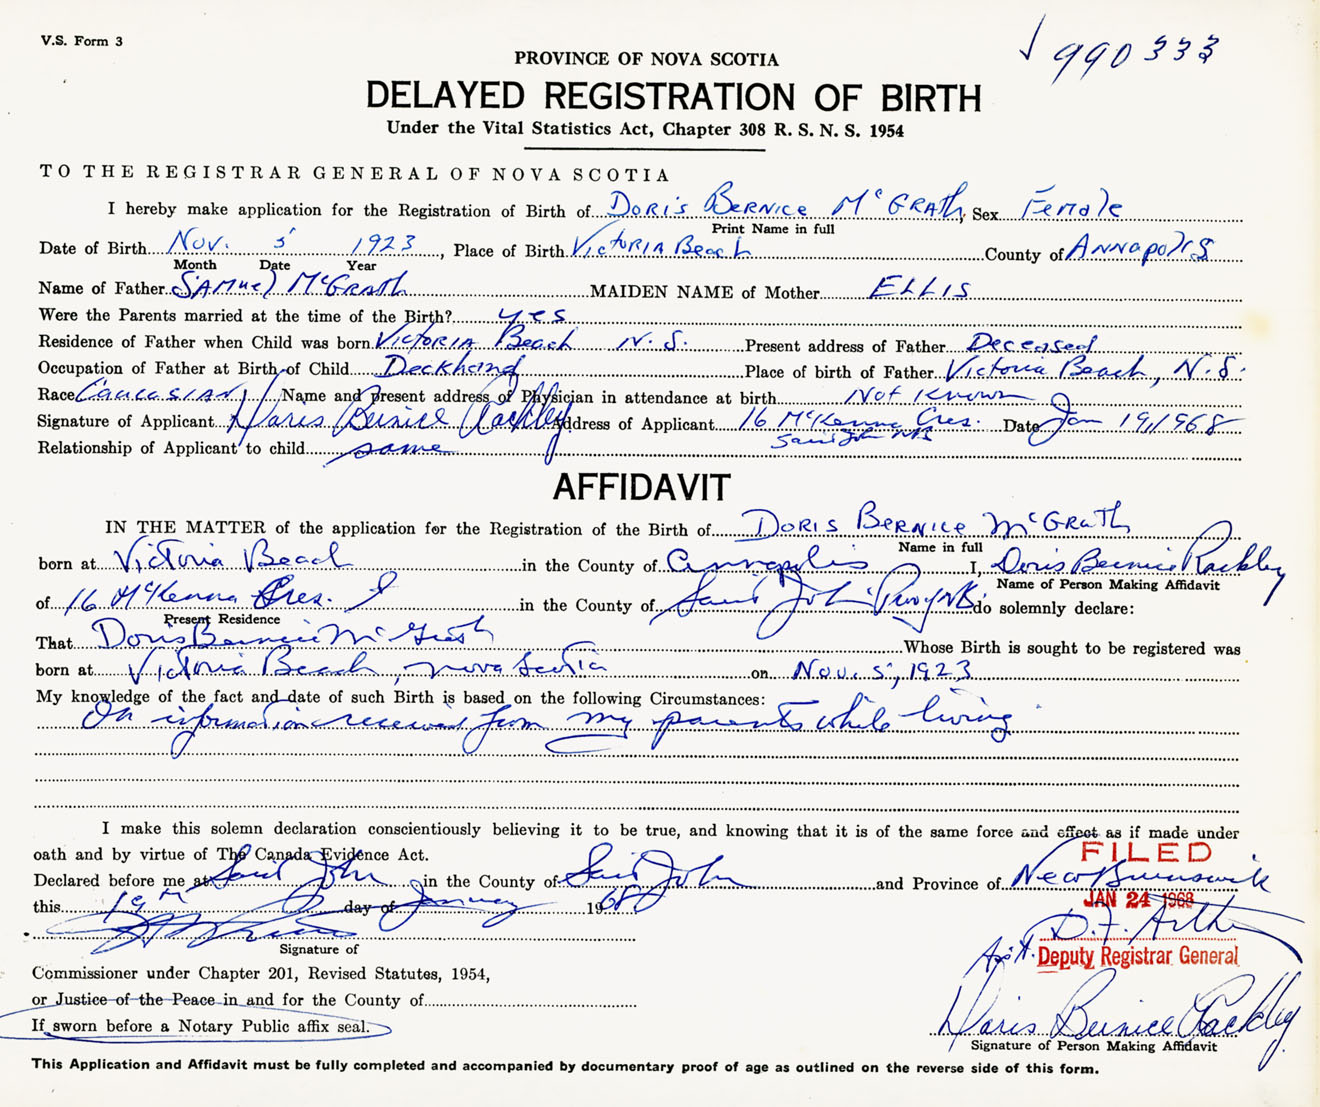 V.S. Form 3
990333
PROVINCE OF NOVA SCOTIA
DELAYED REGISTRATION OF BIRTH
Under the Vital Statistics Act, Chapter 308 R. S. N. S. 1954
TO THE REGISTRAR GENERAL OF NOVA SCOTIA
I hereby make application for the Registration of Birth of Doris Bernice McGrath, Sex Female
Print Name in full
Date of Birth Nov. 5 1923, Place of Birth Victoria Beach County of Annapolis
Month Date Year
Name of Father Samuel McGrath MAIDEN NAME of Mother ELLIS
Were the Parents married at the time of the Birth? yes
Residence of Father when Child was born Victoria Beach N.S. Present address of Father Deceased
Occupation of Father at Birth of Child Deckhand Place of birth of Father Victoria Beach, N.S.
Race Caucasian Name and present address of Physician in attendance at birth Not Known
Signature of Applicant Doris Bernice Rackley Address of Applicant 16 McKenna Cres. Date Jan 19, 1968
Saint John NB
Relationship of Applicant to child same
AFFIDAVIT
IN THE MATTER of the application for the Registration of the Birth of Doris Bernice McGrath
Name in full
born at Victoria Beach in the County of Annapolis I, Doris Bernice Rackley
Name of Person Making Affidavit
of 16 McKenna Cres. in the County of Saint John NB do solemnly declare:
Present Residence
That Doris Bernice McGrath Whose Birth is sought to be registered was
born at Victoria Beach, Nova Scotia on Nov. 5, 1923
My knowledge of the fact and date of such Birth is based on the following Circumstances:
On information received from my parents while living
I make this solemn declaration conscientiously believing it to be true, and knowing that it is of the same force and effect as if made under
oath and by virtue of The Canada Evidence Act.
FILED
Declared before me at Saint John in the County of Saint John and Province of New Brunswick
this 19th day of January 1968
JAN 24 1968
Signature of
D. F. Arthur
Asst. Deputy Registrar General
Commissioner under Chapter 201, Revised Statutes, 1954,
or Justice of the Peace in and for the County of
If sworn before a Notary Public affix seal.
Doris Bernice Rackley
Signature of Person Making Affidavit
This Application and Affidavit must be fully completed and accompanied by documentary proof of age as outlined on the reverse side of this form.